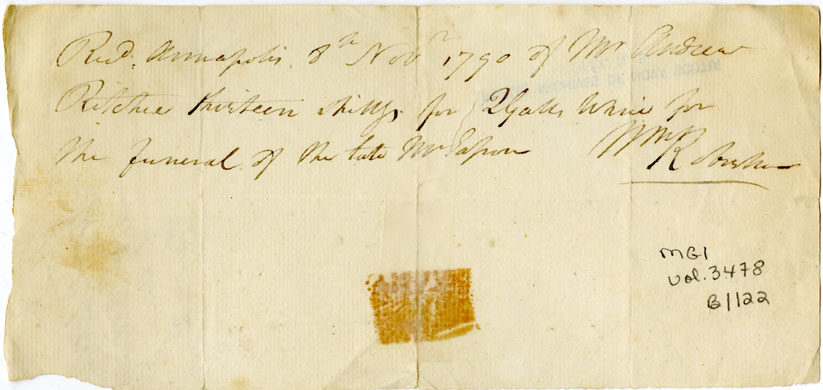 Recd. Annapolis 8th Novr 1790 of Mr Andrew
Ritchie thirteen shillgs for 2 Galls Wine for
the funeral of the late Mr
Wm Robertson
MG1
vol. 3478
B/122